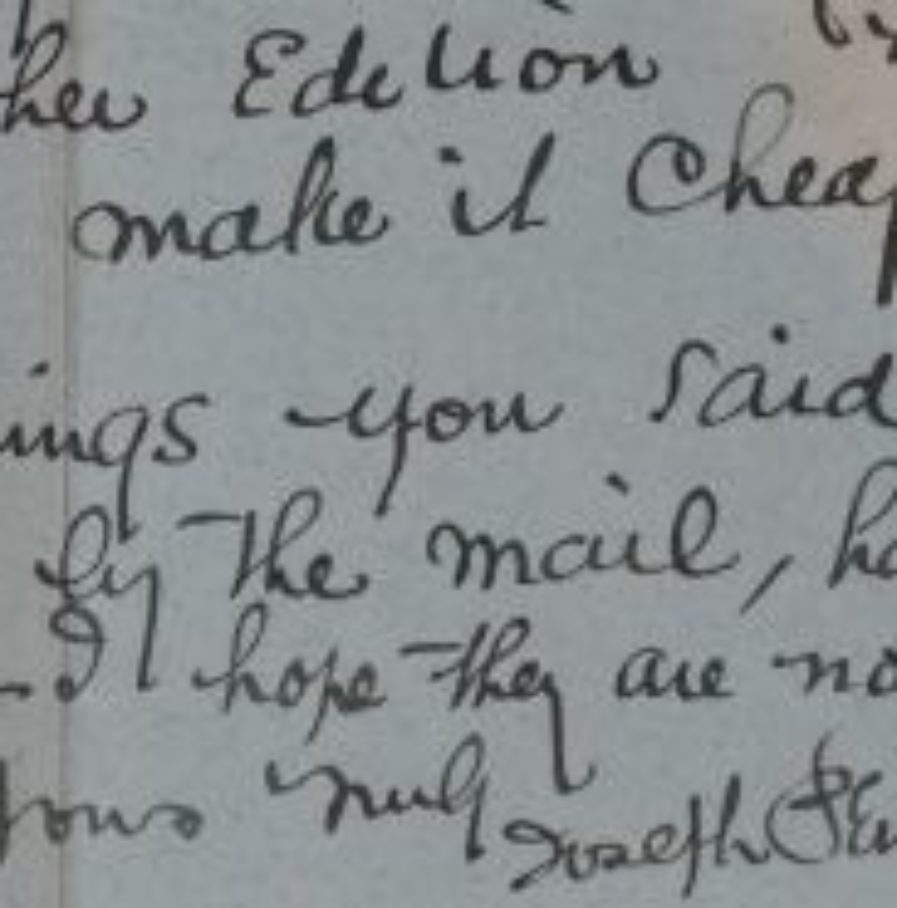 her Edition
make it Cheap
ings you said
by the mail, ha
I hope they are no
yours truly Joseph